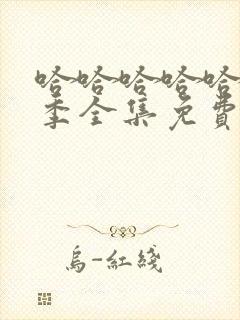 哈哈哈哈哈
季全集免費
烏-紅綫